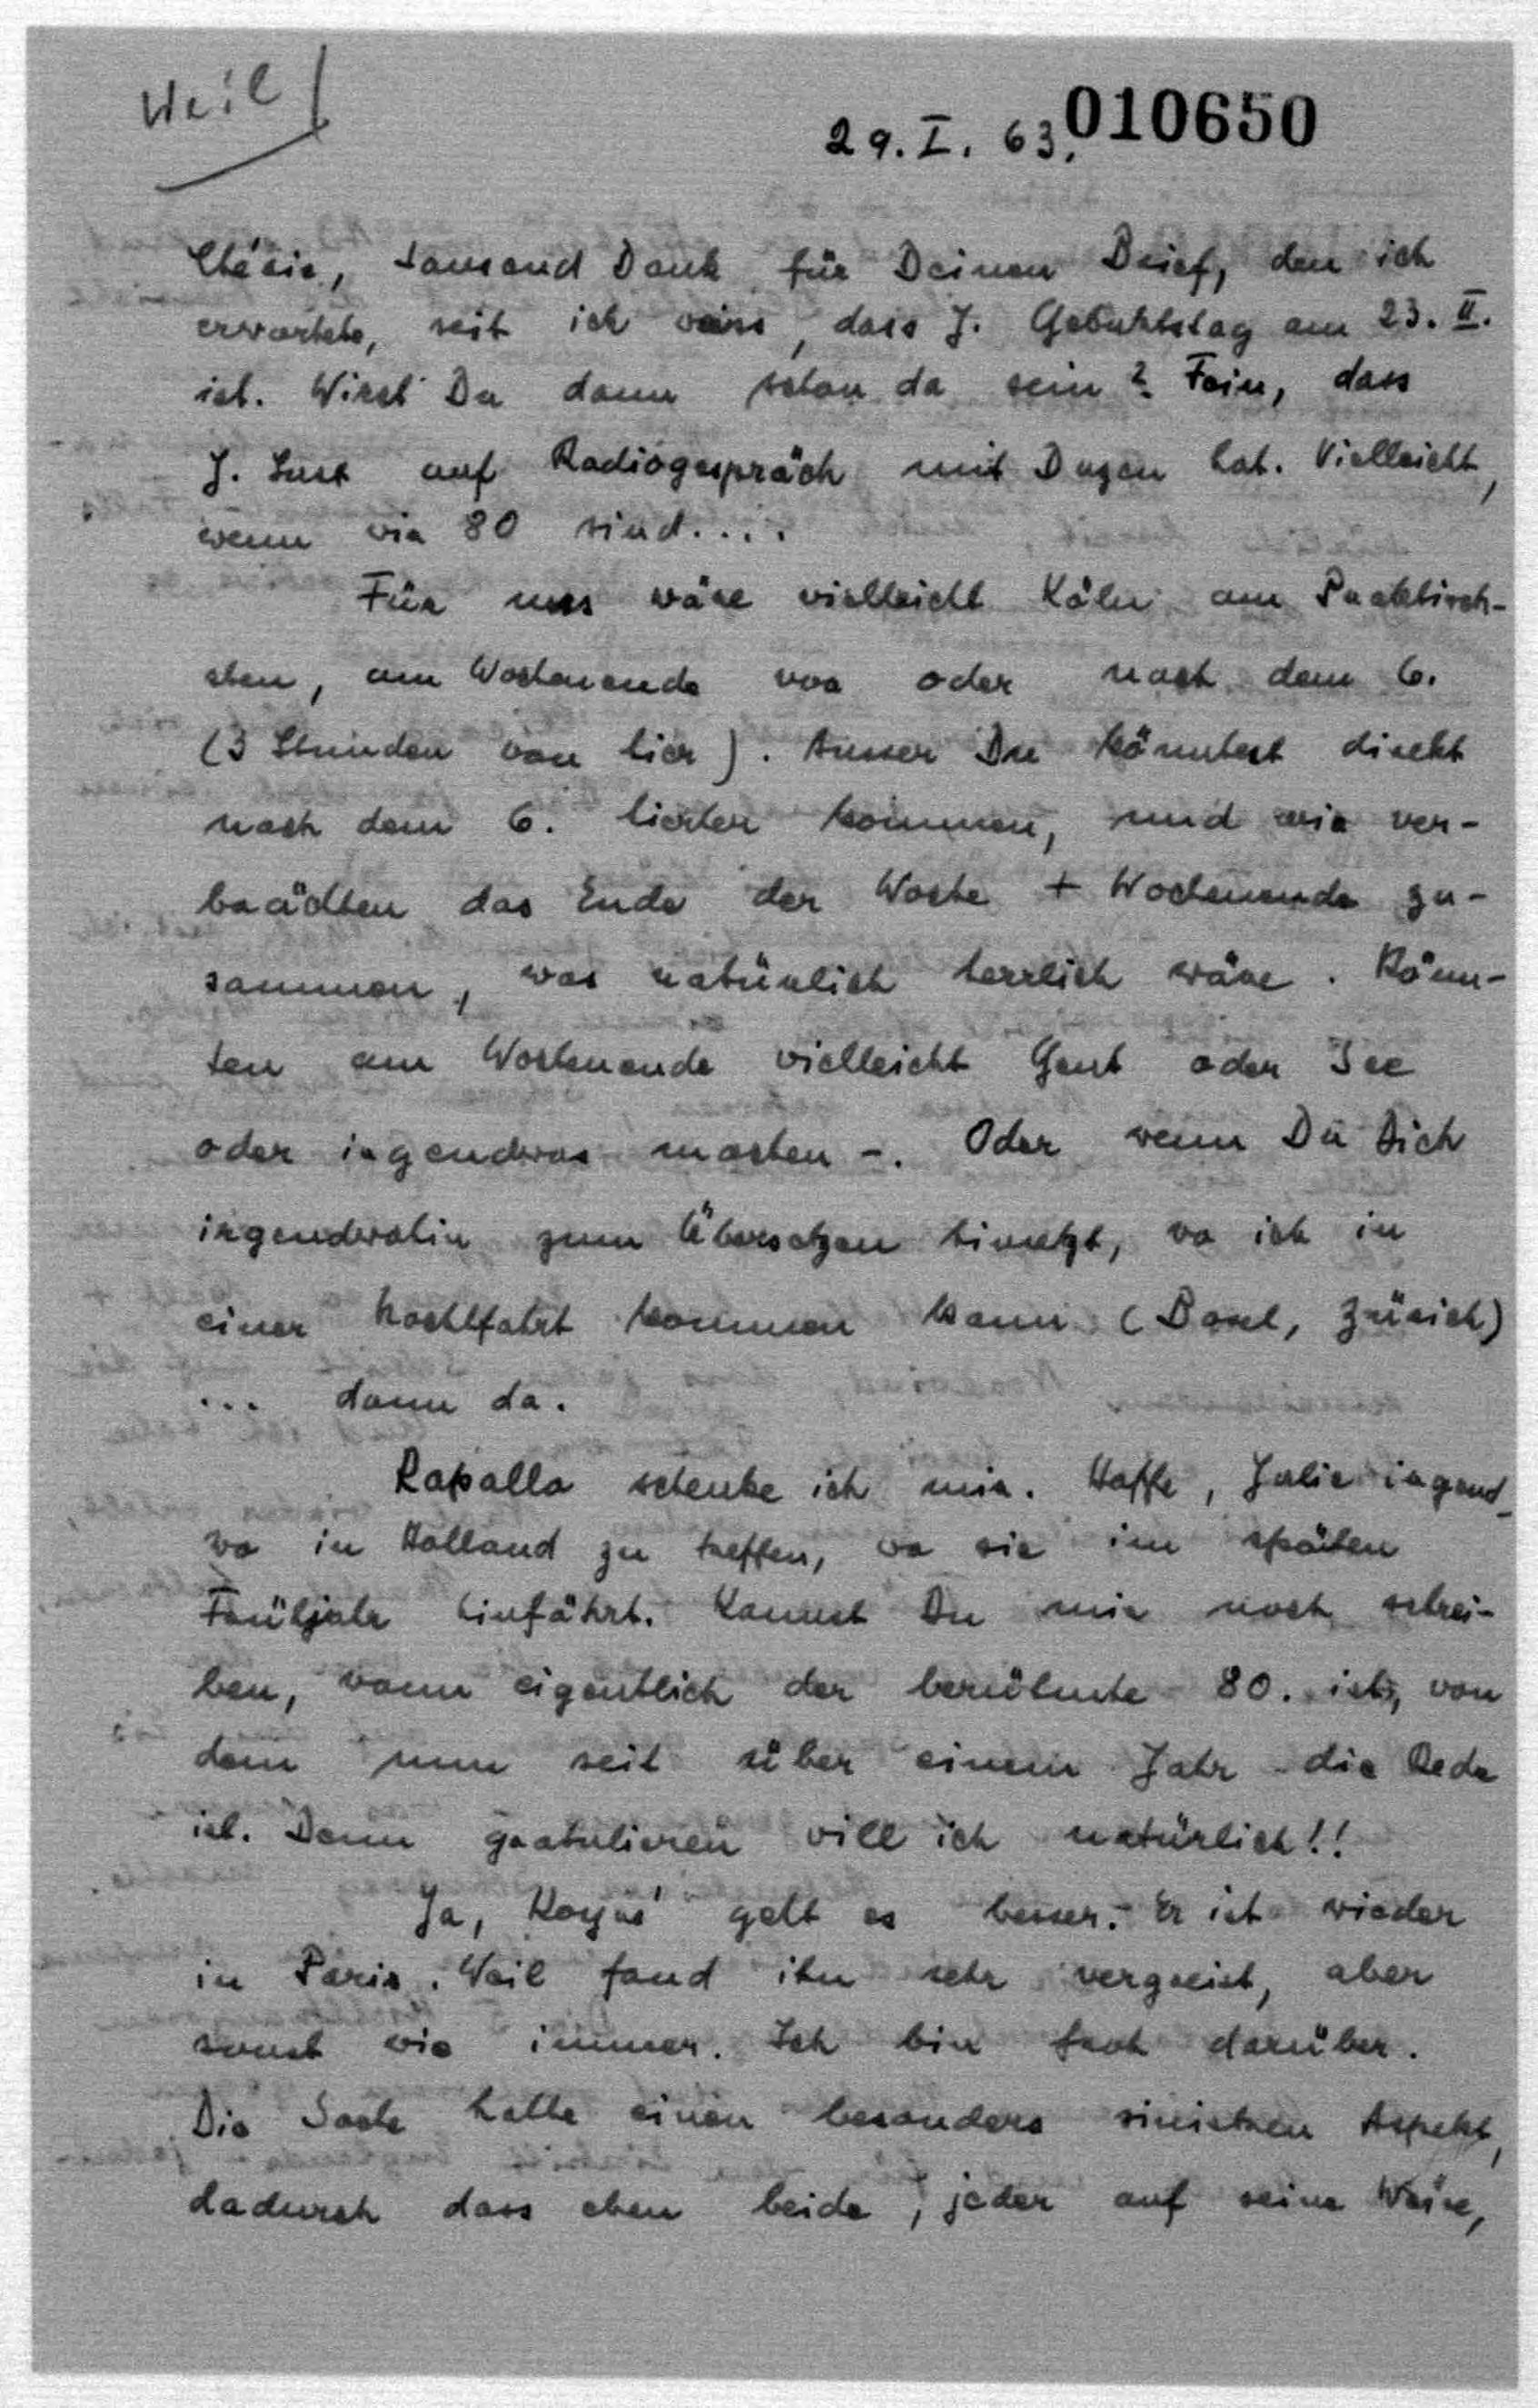 Weil
29. I. 63. 010650
Chérie, tausend Dank für Deinen Brief, den ich
erwartete, seit ich weiss, dass J. Geburtstag am 23. II.
ist. Wirst Du dann schon da sein? Fein, dass
J. Lust auf Radiogespräch mit Dagen hat. Vielleicht,
wenn wir 80 sind....
Für uns wäre vielleicht Köln am Praktisch-
sten, am Wochenende vor oder nach dem 6.
(3 Stunden von hier). Ausser Du könntest direkt
nach dem 6. hierher kommen, und wir ver-
brächten das Ende der Woche + Wochenende zu-
sammen, was natürlich herrlich wäre. Könn-
ten am Wochenende vielleicht Gent oder See
oder irgendwas machen -. Oder wenn Du Dich
irgendwohin zum Übersetzen hinsetzt, wo ich in
einer Nachtfahrt kommen kann (Basel, Zürich)
... dann da.
Rapallo schenke ich mir. Hoffe, Julie irgend-
wo in Holland zu treffen, wo sie im späten
Frühjahr hinfährt. Kannst Du mir noch schrei-
ben, wann eigentlich der berühmte 80. ist, von
dem nun seit über einem Jahr die Rede
ist. Denn gratulieren will ich natürlich!!
Ja, Koyré geht es besser. Er ist wieder
in Paris. Weil fand ihn sehr vergreist, aber
sonst wie immer. Ich bin froh darüber.
Die Sache hatte einen besonders sinistren Aspekt,
dadurch dass eben beide, jeder auf seine Weise,